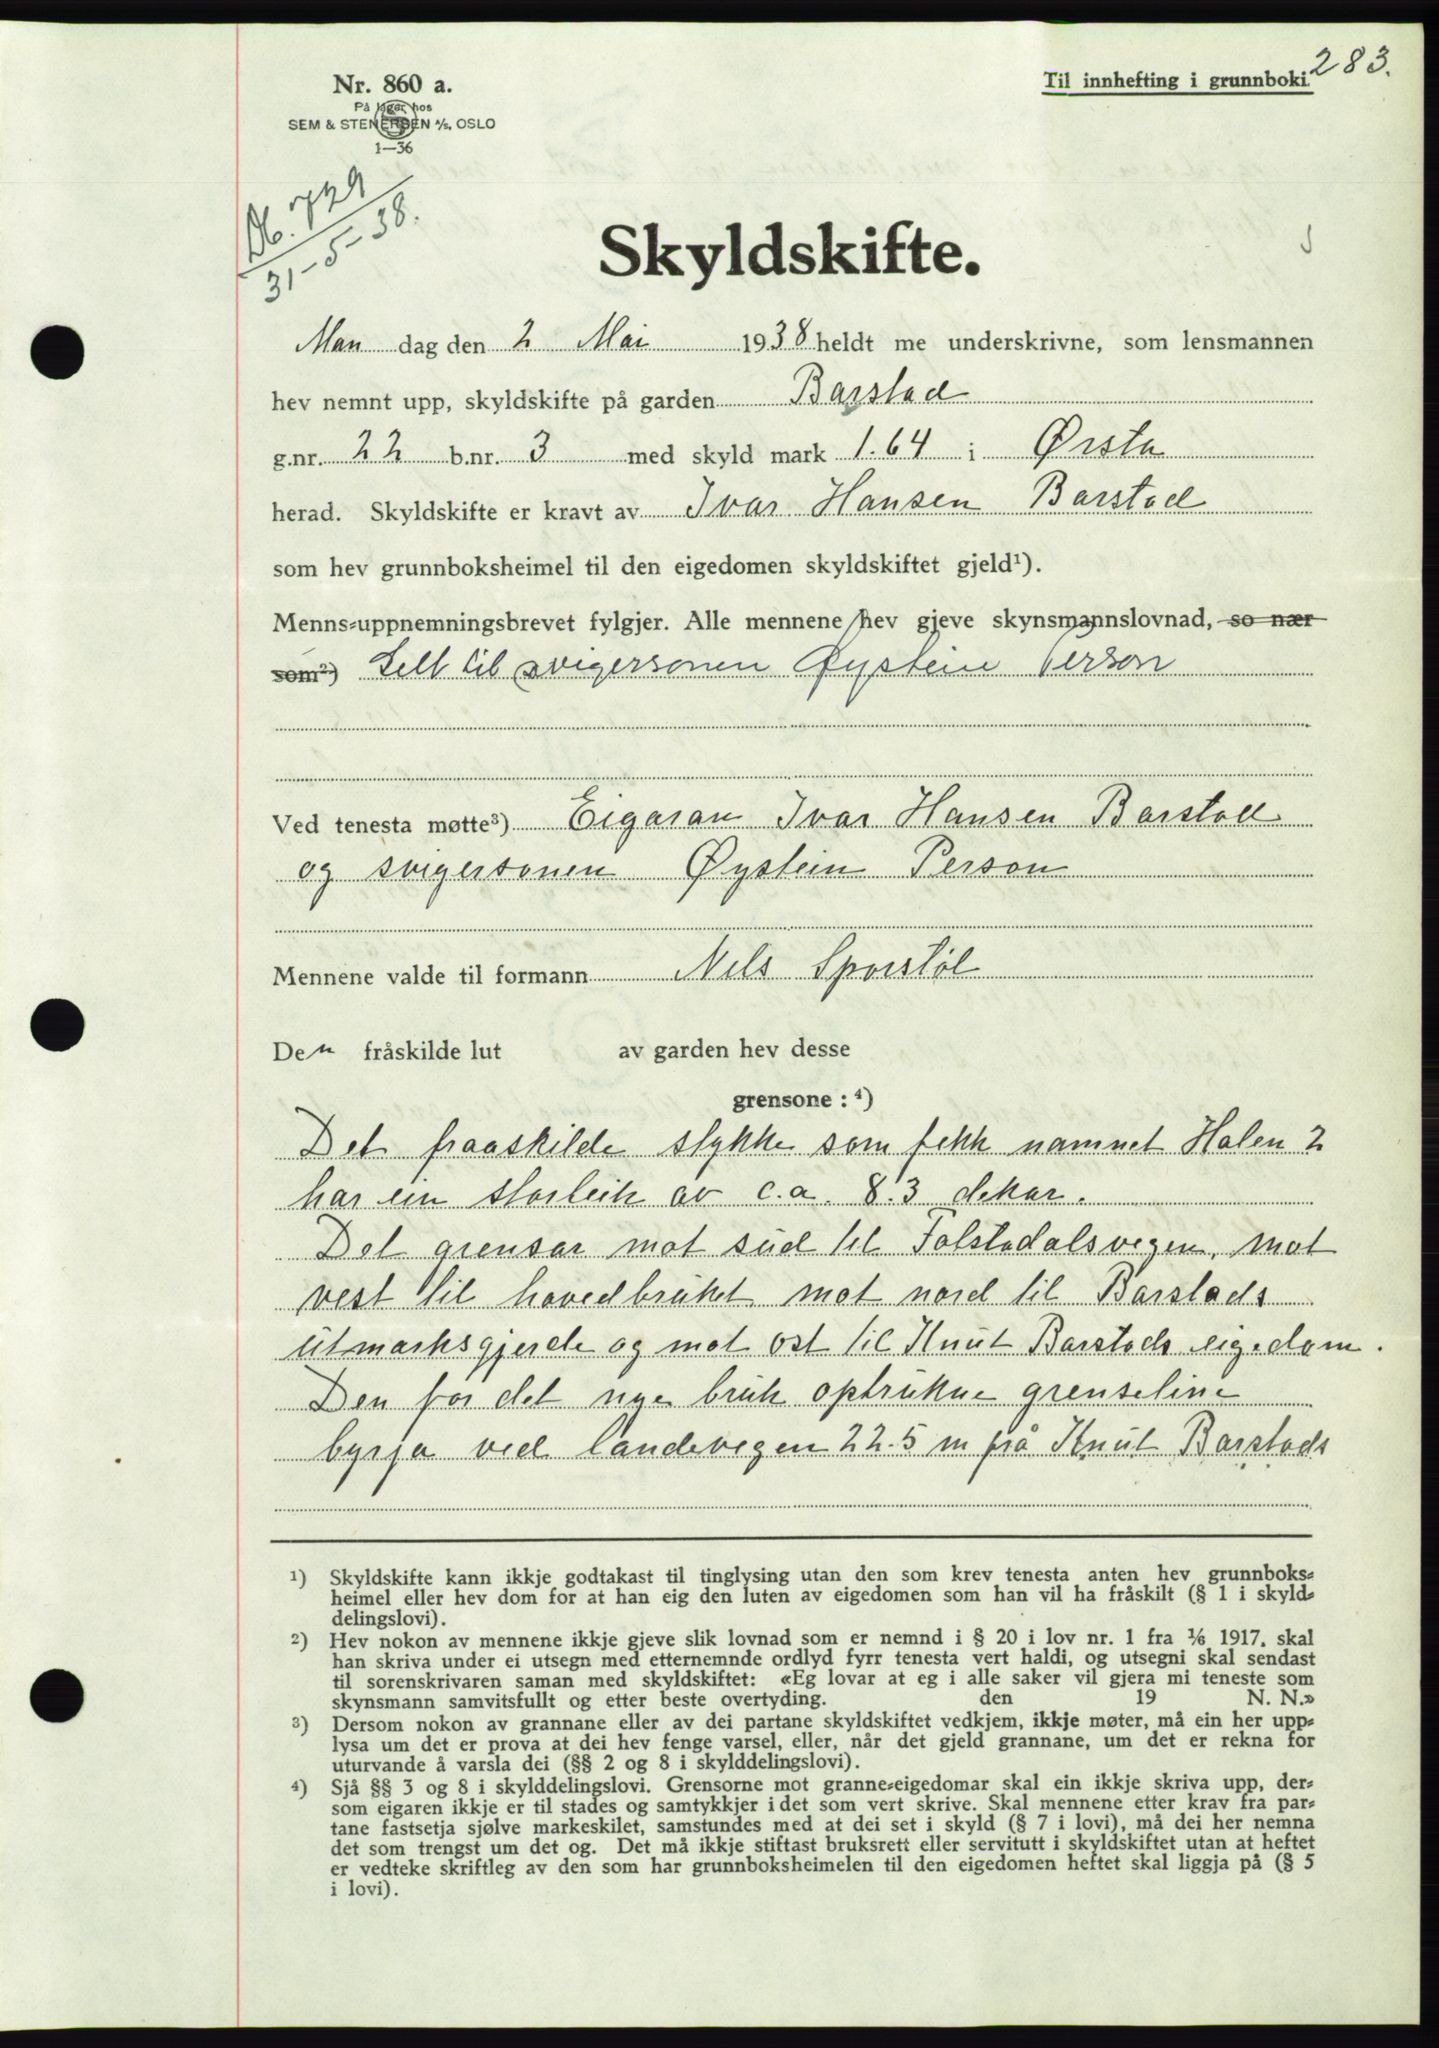 283.
Nr. 860 a.
På lager hos
SEM & STENERSEN A/S, OSLO
1—36
Til innhefting i grunnboki.
Db. 729
31-5-38.
Skyldskifte.
Man dag den 2 Mai 1938 heldt me underskrivne, som lensmannen
hev nemnt upp, skyldskifte på garden Barstad
g.nr. 22 b.nr. 3 med skyld mark 1.64 i Ørsta
herad. Skyldskifte er kravt av Ivar Hansen Barstad
som hev grunnboksheimel til den eigedomen skyldskiftet gjeld¹).
Menns-uppnemningsbrevet fylgjer. Alle mennene hev gjeve skynsmannslovnad, so nær
som²) Selt til svigersonen Øystein Person
Ved tenesta møtte³) Eigaran Ivar Hansen Barstad
og svigersonen Øystein Person
Mennene valde til formann Nils Sporstøl
Den fråskilde lut av garden hev desse
grensone : ⁴)
Det fraaskilde stykke som fekk namnet Halen 2
har ein storleik av c.a. 8.3 dekar.
Det grensar mot süd til Folstadalsvegen, mot
vest til hovedbrüket, mot nord til Barstads
ütmarksgjerde og mot ost til Knüt Barstads eigedom.
Den for det nye brük optrükne grenseline
byrja ved landevegen 22.5 m frå Knüt Barstads
¹) Skyldskifte kann ikkje godtakast til tinglysing utan den som krev tenesta anten hev grunnboks-
heimel eller hev dom for at han eig den luten av eigedomen som han vil ha fråskilt (§ 1 i skyld-
delingslovi).
²) Hev nokon av mennene ikkje gjeve slik lovnad som er nemnd i § 20 i lov nr. 1 fra 1/6 1917, skal
han skriva under ei utsegn med etternemnde ordlyd fyrr tenesta vert haldi, og utsegni skal sendast
til sorenskrivaren saman med skyldskiftet: «Eg lovar at eg i alle saker vil gjera mi teneste som
skynsmann samvitsfullt og etter beste overtyding. den 19 N. N.»
³) Dersom nokon av grannane eller av dei partane skyldskiftet vedkjem, ikkje møter, må ein her upp-
lysa um det er prova at dei hev fenge varsel, eller, når det gjeld grannane, um det er rekna for
uturvande å varsla dei (§§ 2 og 8 i skylddelingslovi).
⁴) Sjå §§ 3 og 8 i skylddelingslovi. Grensorne mot granne-eigedomar skal ein ikkje skriva upp, der-
som eigaren ikkje er til stades og samtykkjer i det som vert skrive. Skal mennene etter krav fra par-
tane fastsetja sjølve markeskilet, samstundes med at dei set i skyld (§ 7 i lovi), må dei her nemna
det som trengst um det og. Det må ikkje stiftast bruksrett eller servitutt i skyldskiftet utan at heftet
er vedteke skriftleg av den som har grunnboksheimelen til den eigedomen heftet skal liggja på (§ 5
i lovi).